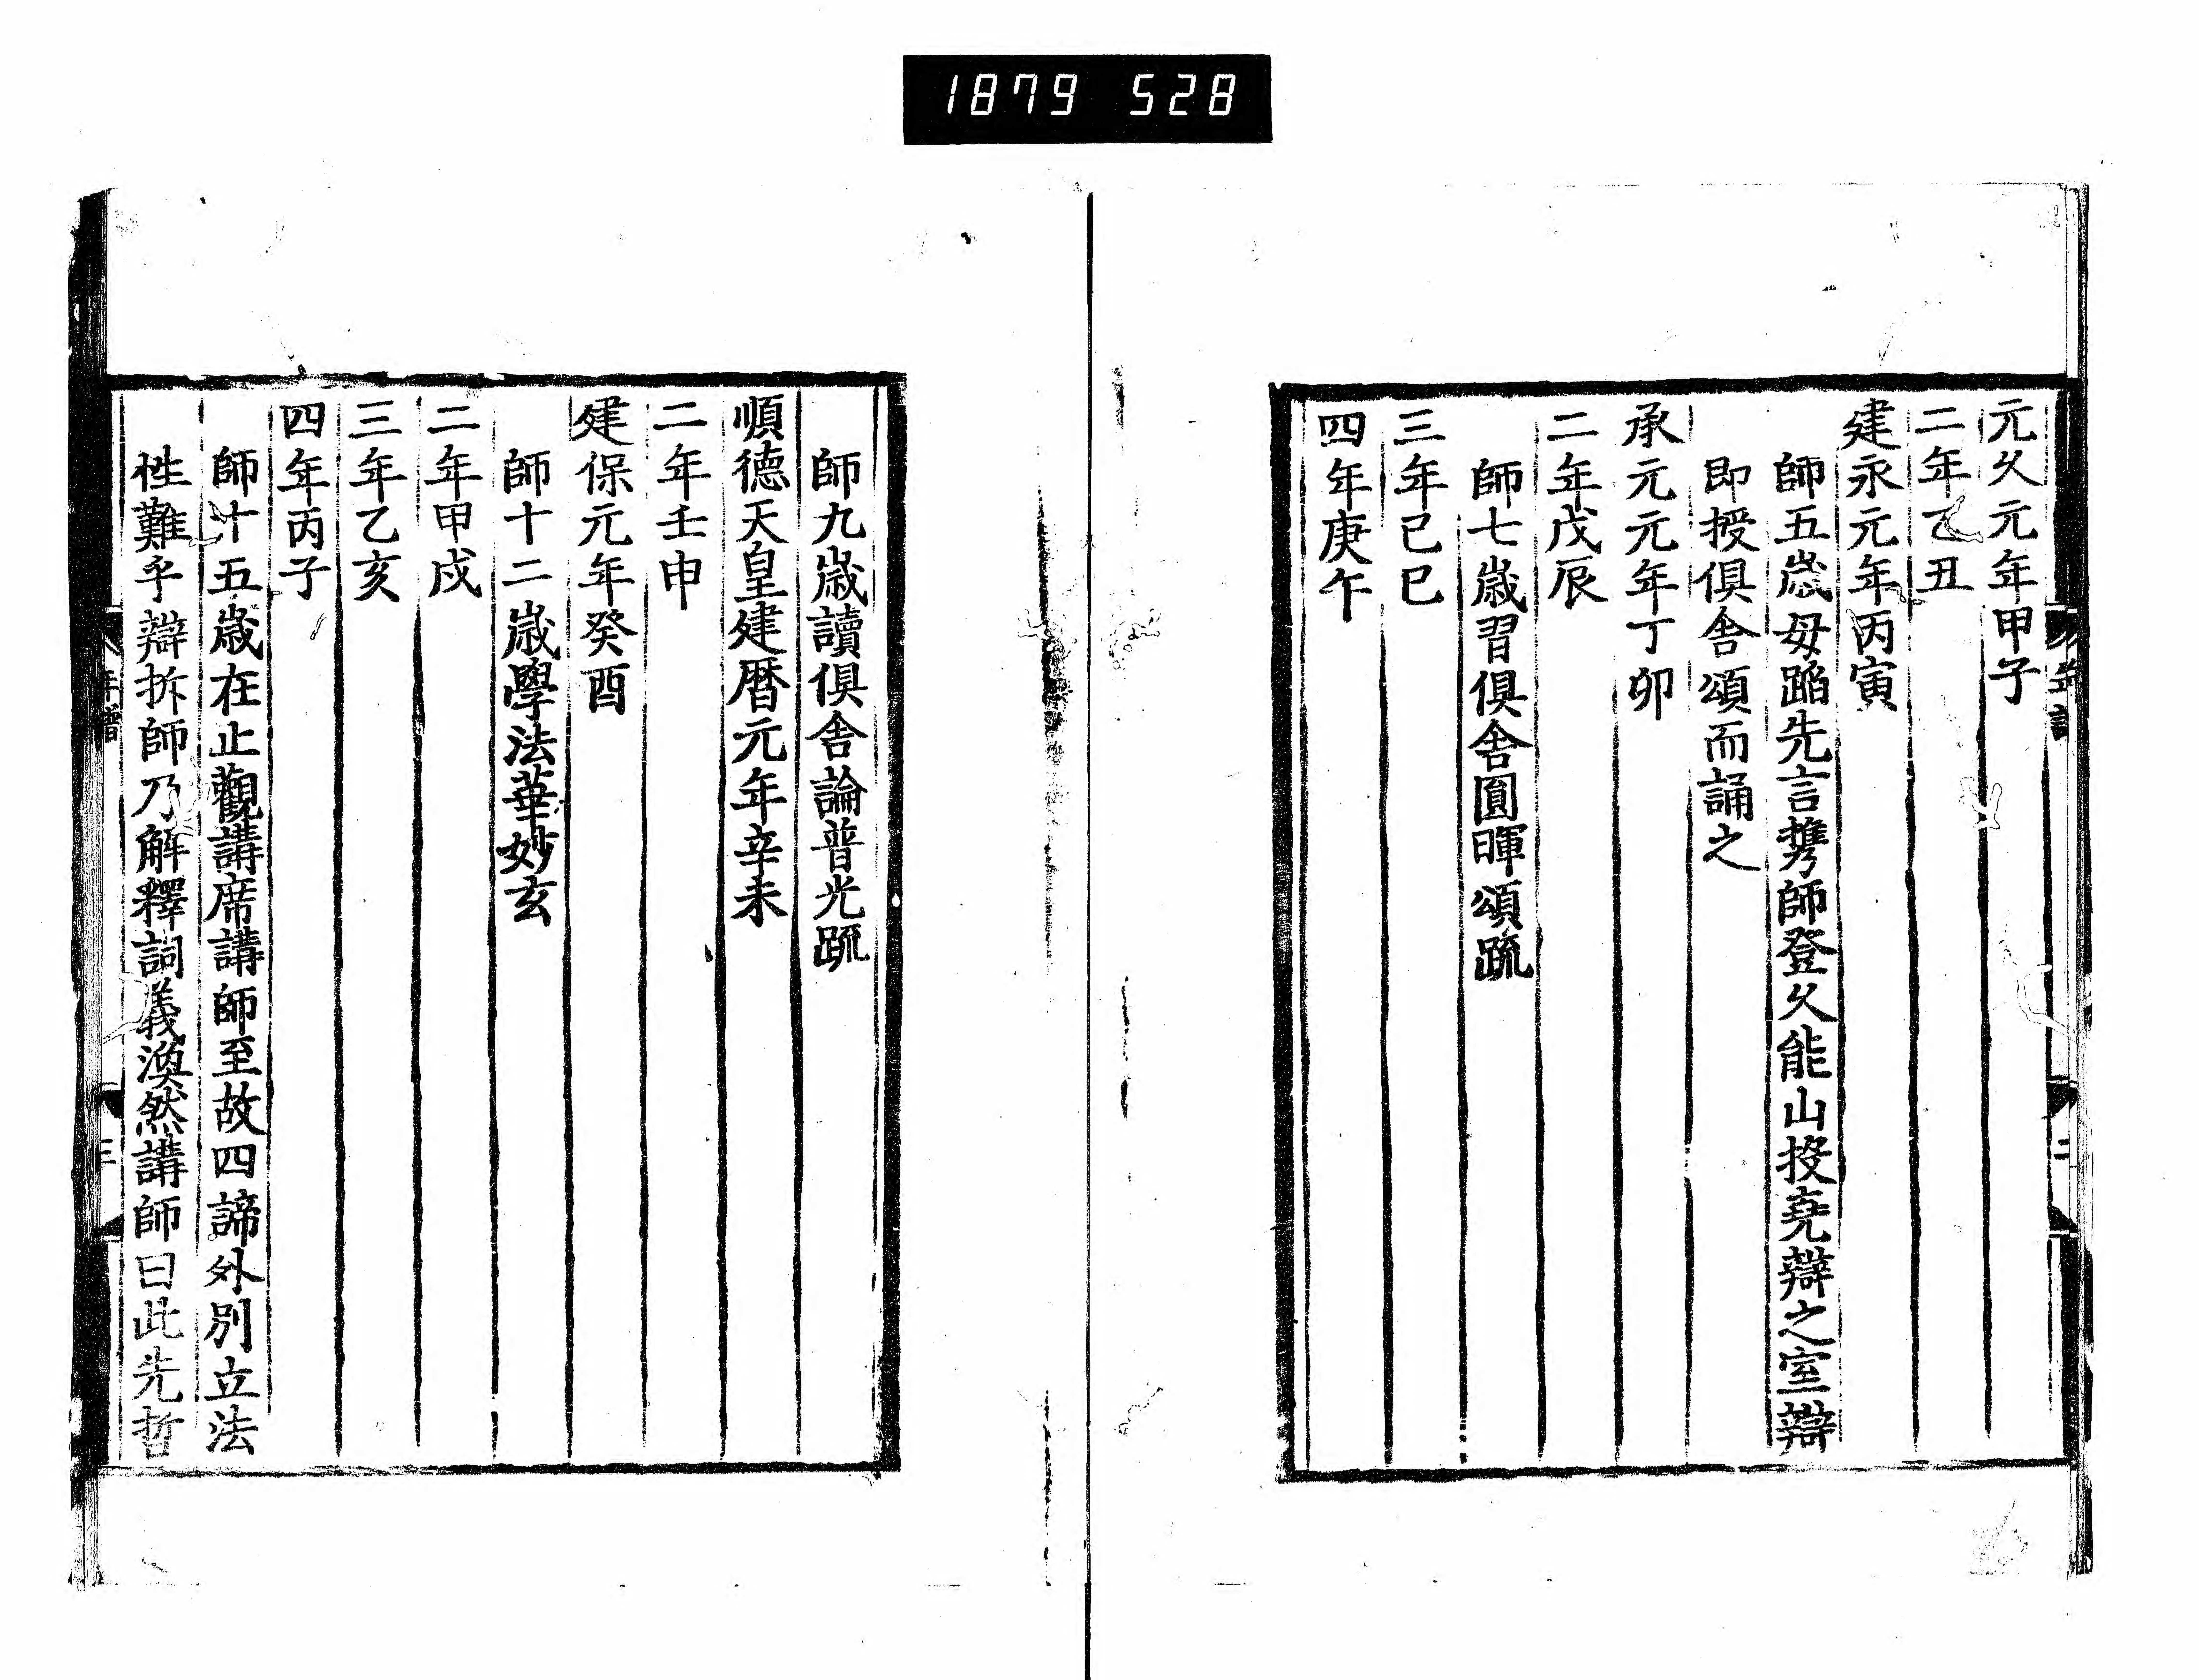 1879 528
元久元年甲子
二年乙丑
建永元年丙寅
師五歳母蹈先言携師登久能山投尭辯之室辯
即授倶舎頌而誦之
承元元年丁卯
二年戊辰
師七歳習倶舎圓暉頌䟽
三年己巳
四年庚午
師九歳讀倶舎論普光䟽
順德天皇建暦元年辛未
二年壬申
建保元年癸酉
師十二歳學法華妙玄
二年甲戌
三年乙亥
四年丙子
師十五歳在止觀講席講師至故四諦外別立法
性難乎辯拆師乃解釋詞義渙然講師曰此先哲
年譜
三